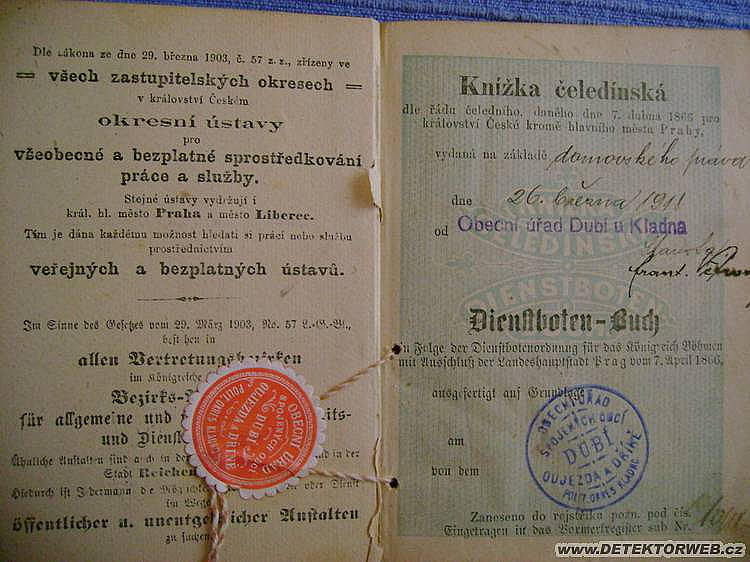 Dle zákona ze dne 29. března 1903, č. 57 z. z., zřízeny ve
= všech zastupitelských okresech =
v království Českém
okresní ústavy
pro
všeobecné a bezplatné sprostředkování
práce a služby.
Stejné ústavy vydržují i
král. hl. město Praha a město Liberec.
Tím je dána každému možnost hledati si práci nebo službu
prostřednictvím
veřejných a bezplatných ústavů.
Im Sinne des Gesetzes vom 29. März 1903, No. 57 L.-G.-Bl.,
bestehen in
allen Vertretungsbezirken
im Königreiche
Bezirks-
für allgemeine und
und Dienst
Ähnliche Anstalten sind auch in der
Stadt Reichen
Hiedurch ist Jedermann die oder Dienst
im Wege
öffentlicher u. unentgeltlicher Anstalten
zu suchen.
OBECNÍ ÚŘAD
SPOJENÝCH OBCÍ
DUBÍ
OUJEZDA A DŘÍNĚ
POLIT. OKRES KLADNO
Knížka čeledínská
dle řádu čeledního, daného dne 7. dubna 1866 pro
království České kromě hlavního města Prahy,
vydaná na základě domovského práva
dne 26. března 1911
od Obecní úřad Dubí u Kladna
ČELEDÍNSKÁ
DIENSTBOTEN
Dienstboten-Buch
in Folge der Dienstbotenordnung für das Königreich Böhmen
mit Ausschluß der Landeshauptstadt Prag vom 7. April 1866,
ausgefertigt auf Grundlage
am
von dem
OBECNÍ ÚŘAD
SPOJENÝCH OBCÍ
DUBÍ
OUJEZDA A DŘÍNĚ
POLIT. OKRES KLADNO
Zaneseno do rejstříku pozn. pod čís.
Eingetragen in das Vormerkregister sub Nr.
www.DETEKTORWEB.cz